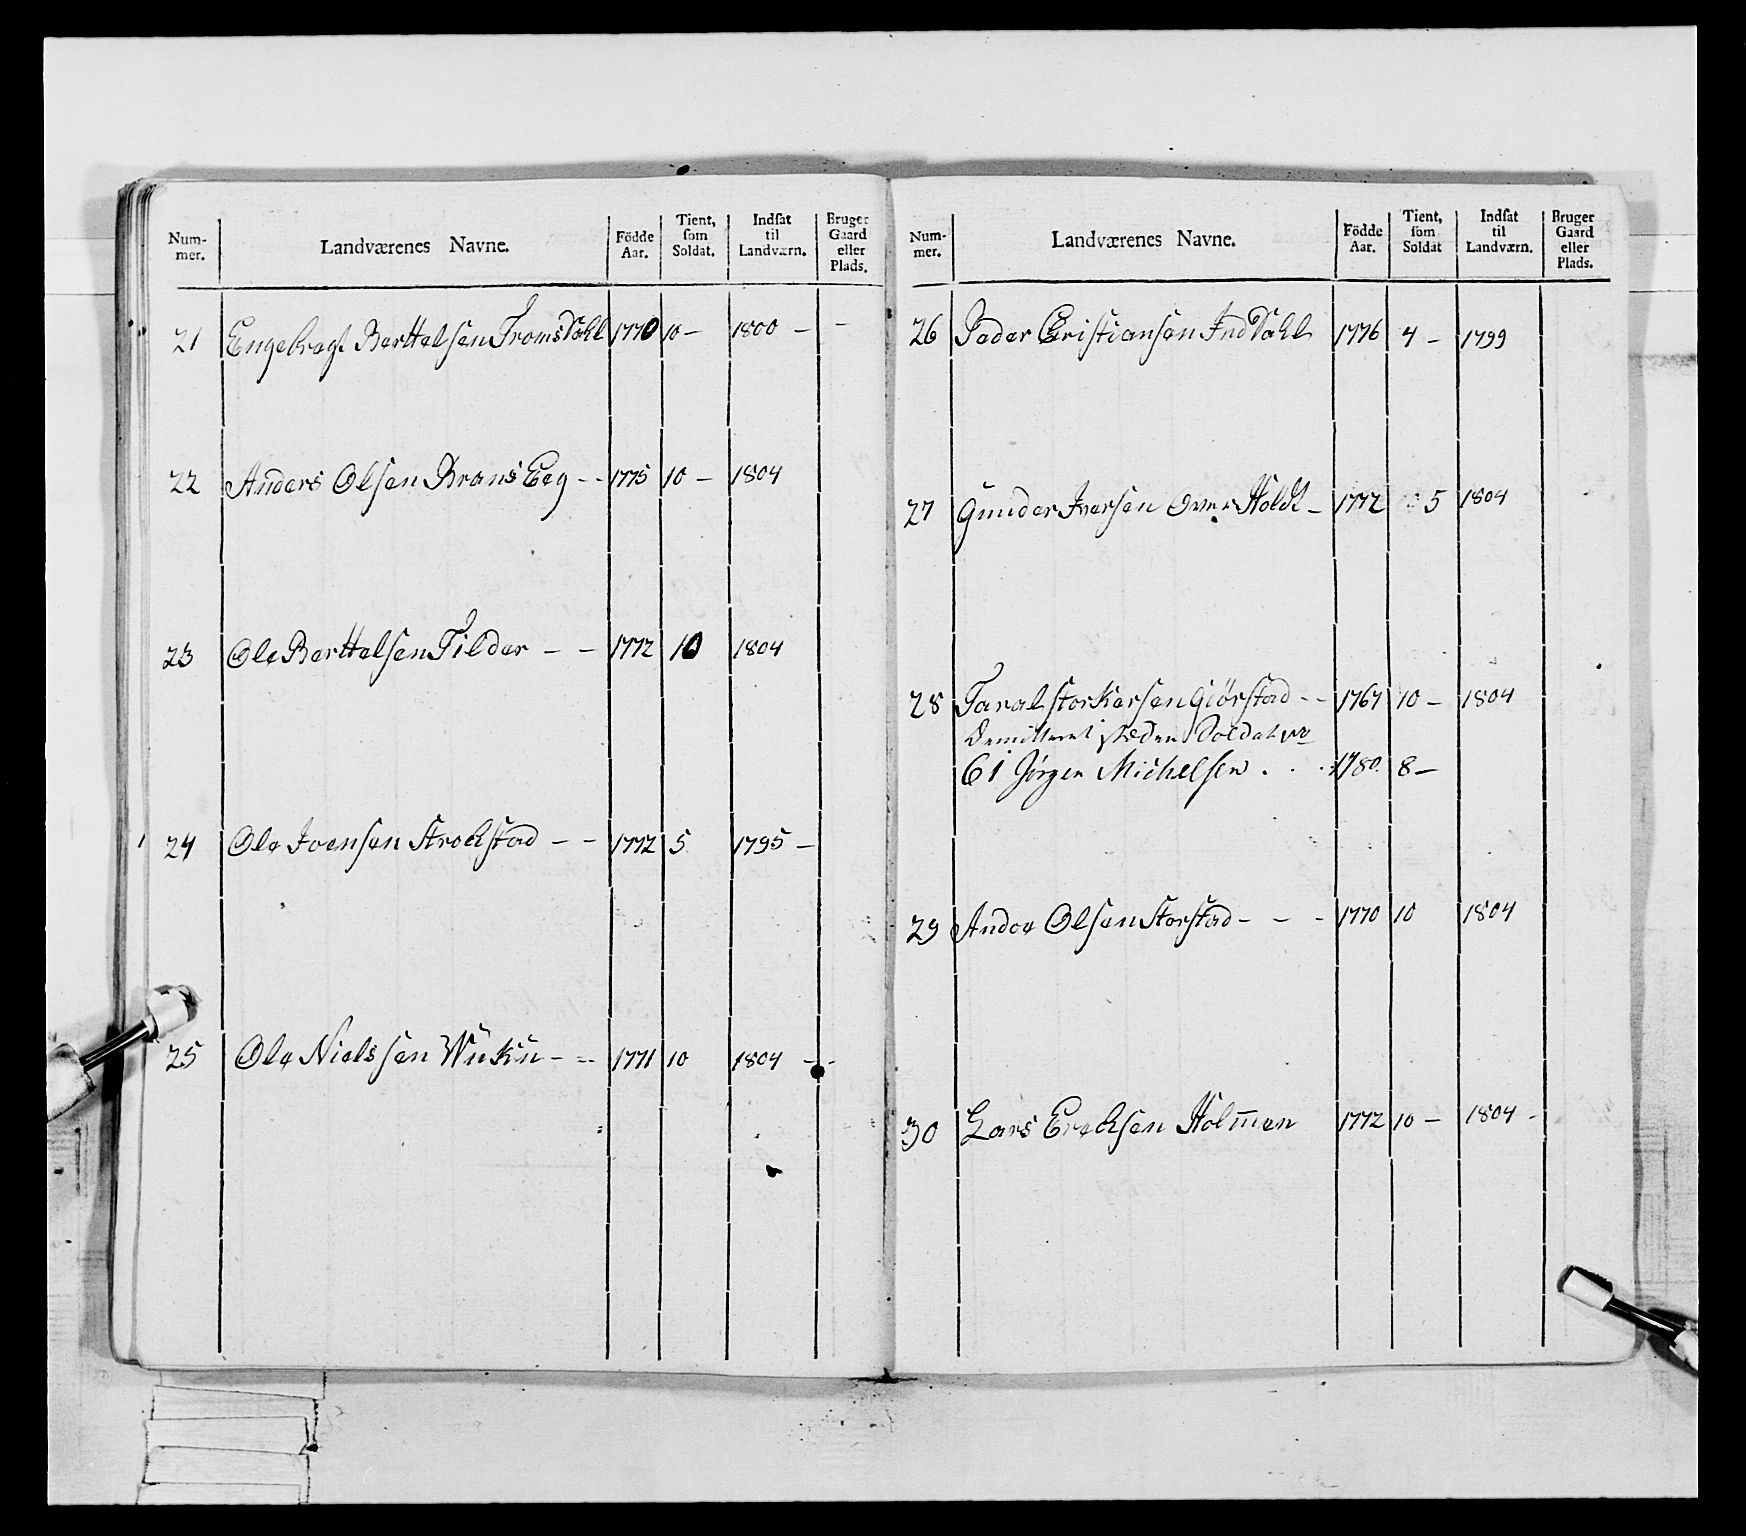 Num-
mer.
Landværenes Navne.
Födde
Aar.
Tient,
som
Soldat.
Indsat
til
Landværn.
Bruger
Gaard
eller
Plads.
21 Engebregt Berttelsen Tromsdahl 1770 10 – 1800 – –
22 Anders Olsen Brans Eeg – – 1775 10 – 1804
23 Ole Berttelsen Tilder – – 1772 10 1804
24 Ole Joensen Strochstad – – 1772 5 1795 –
25 Ole Nielssen Wuku – – 1771 10 1804 –
Num-
mer.
Landværenes Navne.
Födde
Aar.
Tient,
som
Soldat
Indsat
til
Landværn.
Bruger
Gaard
eller
Plads.
26 Peder Cristiansen Inddahl 1776 4 – 1799
27 Gunder Iversen Over Holdt – 1772 5 1804
28 Taral Storkersen Giörstad – – 1767 10 – 1804
Demitteret isteden Soldat No
61 Jörgen Michelsen . . . 1780. 8 –
29 Andor Olsen Storstad – – – 1770 10 1804
30 Lars Erechsen Holmen 1772 10 – 1804 –